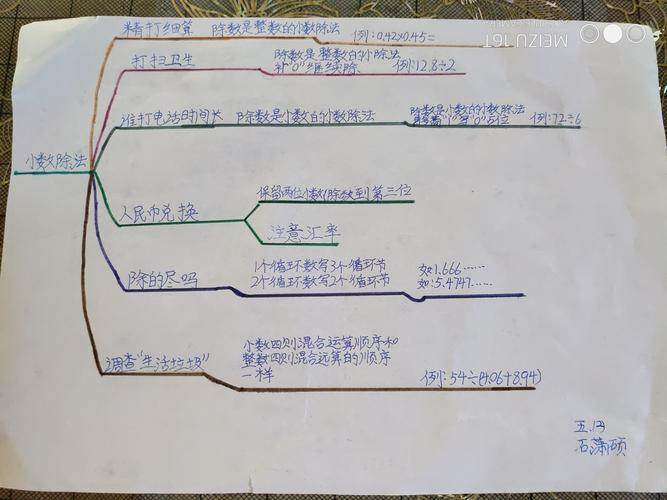 精打细算 除数是整数的小数除法 例:0.42×0.45=
MEIZU 16T
打扫卫生 除数是整数的小除法
补"0"继续除 例:12.8÷2
谁打电话时间长 除数是小数的小数除法 除数是小数的小数除法
例:7.2÷6
小数除法
人民币兑换 保留两位小数(除数到第三位
注意汇率
除的尽吗 1个循环数写3个循环节 如1.666……
2个循环数写2个循环节 如:5.4747……
调查"生活垃圾" 小数四则混合运算顺序和
整数四则混合运算的顺序
一样 例:54÷(4.06+8.94)
五.13